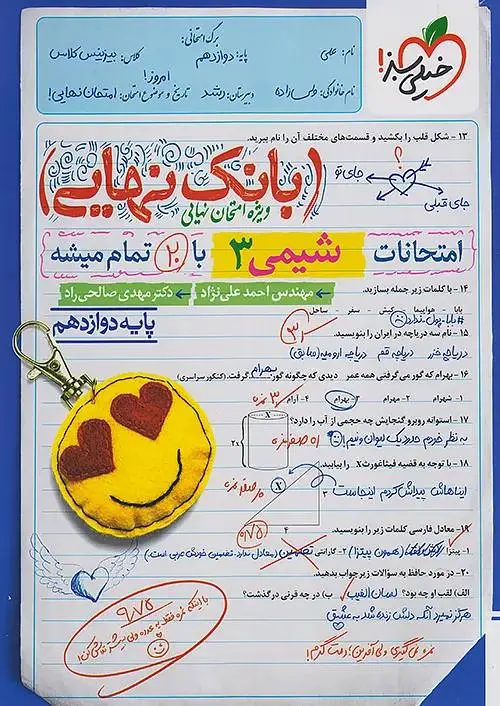 برگ امتحانی:
نام: علی
پایه: دوازدهم
کلاس: بیزینس کلاس
نام خانوادگی:
دبیرستان: رشد
امروز!
تاریخ و موضوع امتحان: امتحان نهایی!
خیلی سبز!
۱۳ - شکل قلب را بکشید و قسمت‌های مختلف آن را نام ببرید.
؟
جای تو
جای قبلی
(بانک نهایی)
ویژه امتحان نهایی
امتحانات شیمی ۳ با ۲۰ تمام میشه
مهندس احمد علی‌نژاد
دکتر مهدی صالحی‌راد
پایه دوازدهم
۱۴ - با کلمات زیر جمله بسازید.
بابا - هواپیما - کیش - سفر - ساحل
#بابا_پول_نداره
۱۵ - نام سه دریاچه در ایران را بنویسید.
دریاچه خزر دریاچه قم دریاچه ارومیه (سابق)
۱۶ - بهرام که گور می‌گرفتی همه عمر دیدی که چگونه گور بهرام گرفت. (کنکور سراسری)
۱- شهرام ۲- مهرام ۳- بهرام ۴- آرام
۱۷ - استوانه روبرو گنجایش چه حجمی از آب را دارد؟
X
2X
به نظر خودم حدود یک لیوان و نیم!
۱۸ - با توجه به قضیه فیثاغورث X را بیابید.
X
۳
۴
ایناهاش پیداش کردم اینجاست
۱۹- معادل فارسی کلمات زیر را بنویسید.
۱- پیتزا (همون پیتزا) ۲- گارانتی تضمین (معادل ندارد. تضمین خودش عربی است)
۲۰- در مورد حافظ به سؤالات زیر جواب بدهید.
الف) لقب او چه بود؟ لسان الغیب ب) در چه قرنی درگذشت؟
هرگز نمیرد آنکه دلش زنده شد به عشق
۹.۷۵
نمره نمی‌گیری ولی آفرین! دمت گرم!